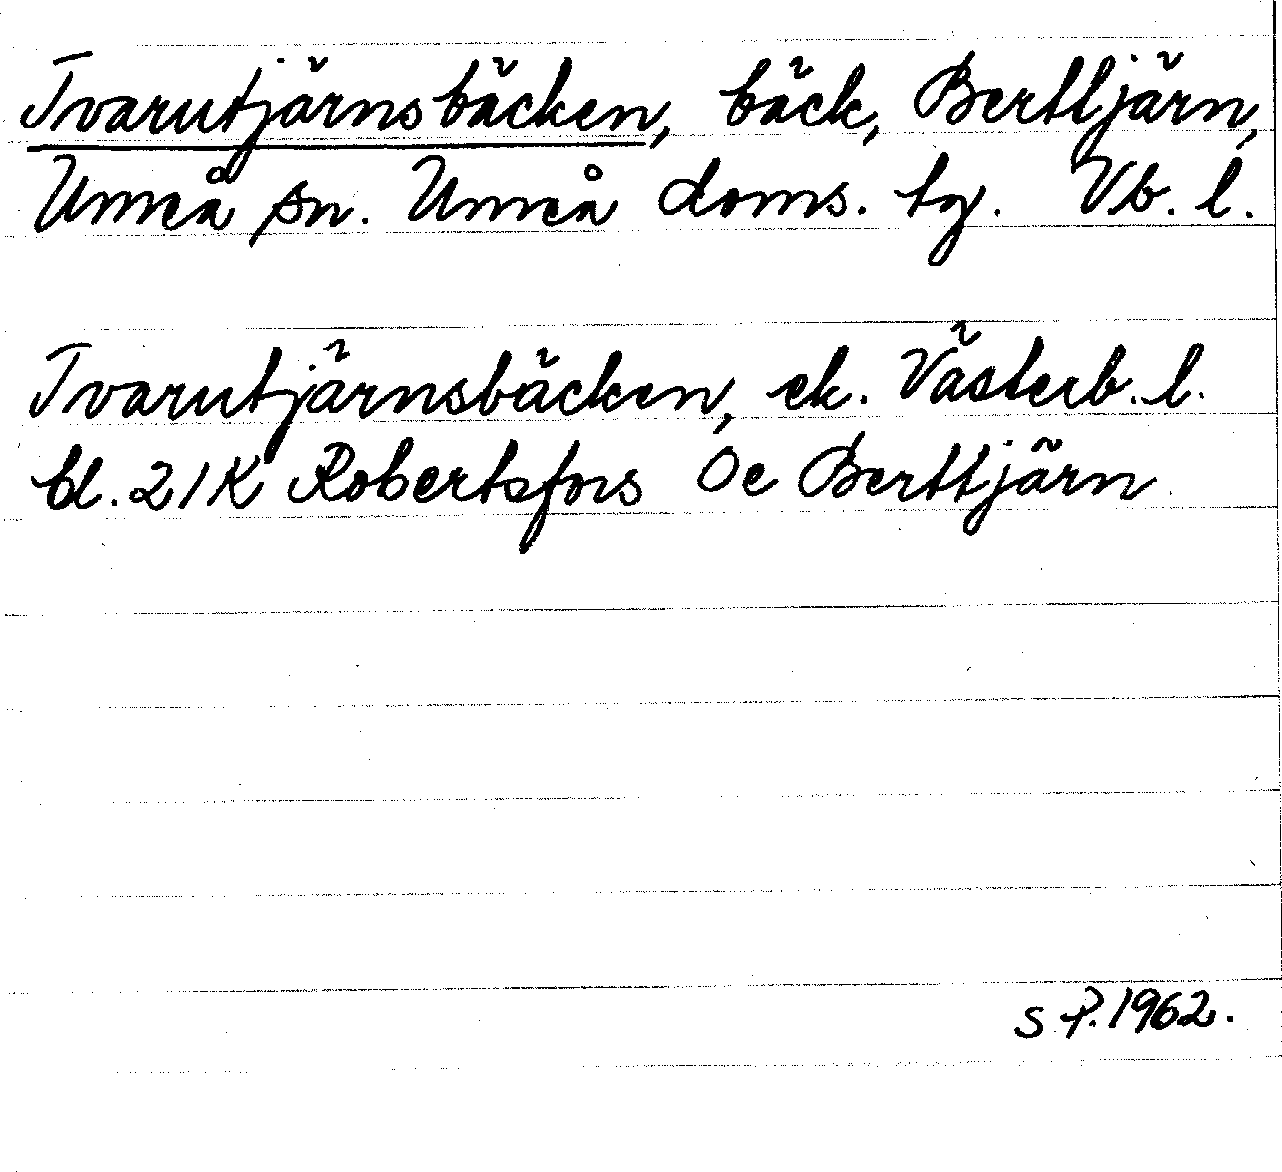 Tvarutjärnsbäcken, bäck, Berttjärn,
Umeå sn. Umeå doms. tg. Vb. l.
Tvarutjärnsbäcken, ek. Västerb. l.
bl. 21K Robertsfors Öe Berttjärn
S.P. 1962.